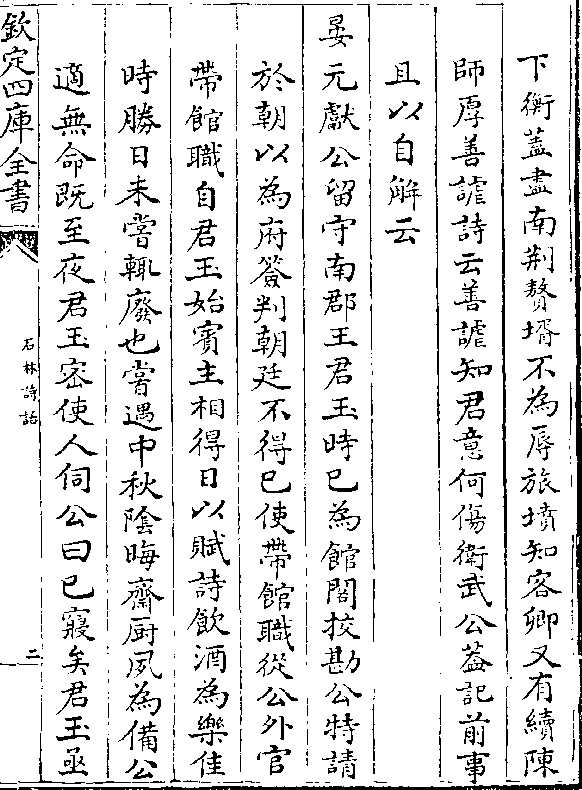 下衡蓋盡南荆贅壻不為辱旅墳知客卿又有續陳
師厚善謔詩云善謔知君意何傷衛武公葢記前事
且以自解云
晏元獻公留守南郡王君玉時已為館閣挍勘公特請
於朝以為府簽判朝廷不得已使帶館職從公外官
帶館職自君玉始賓主相得日以賦詩飲酒為樂佳
時勝日未嘗輙廢也嘗遇中秋陰晦齋厨夙為備公
適無命既至夜君玉宻使人伺公曰已寢矣君玉亟
欽定四庫全書
石林詩話
二